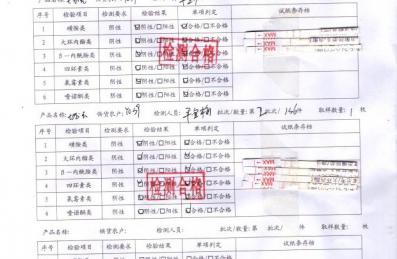 序号 检验项目 检测要求 检验结果 单项判定 试纸条存档
1 磺胺类 阴性 ☑阴性/□阳性 ☑合格/□不合格
2 大环内酯类 阴性 ☑阴性/□阳性 ☑合格/□不合格
3 β-内酰胺类 阴性 ☑阴性/□阳性 ☑合格/□不合格
4 四环素类 阴性 ☑阴性/□阳性 ☑合格/□不合格
5 氯霉素类 阴性 ☑阴性/□阳性 ☑合格/□不合格
6 喹诺酮类 阴性 ☑阴性/□阳性 ☑合格/□不合格
检测合格
产品名称: 供货农户: 检测人员: 批次/数量:第2批次/ 取样数量:1 枚
序号 检验项目 检测要求 检验结果 单项判定 试纸条存档
1 磺胺类 阴性 ☑阴性/□阳性 ☑合格/□不合格
2 大环内酯类 阴性 ☑阴性/□阳性 ☑合格/□不合格
3 β-内酰胺类 阴性 ☑阴性/□阳性 ☑合格/□不合格
4 四环素类 阴性 ☑阴性/□阳性 ☑合格/□不合格
5 氯霉素类 阴性 ☑阴性/□阳性 ☑合格/□不合格
6 喹诺酮类 阴性 ☑阴性/□阳性 ☑合格/□不合格
检测合格
产品名称: 供货农户: 检测人员: 批次/数量:第 批次/ 件 取样数量: 枚
序号 检验项目 检测要求 检验结果 单项判定 试纸条存档
1 磺胺类 阴性 □阴性/□阳性 □合格/□不合格